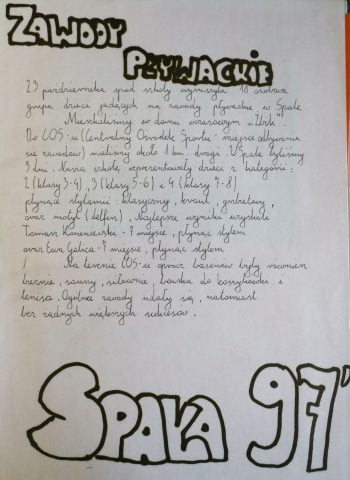 ZAWODY
PŁYWACKIE
23 października spod szkoły wyruszyła 18 osobowa
grupa dzieci jadących na zawody pływackie w Spale.
Mieszkaliśmy w domu wczasowym "Urok".
Do COS-u (Centralny Ośrodek Sportu - miejsce odbywania
się zawodów) mieliśmy około 1 km. drogi. W Spale byliśmy
3 dni. Naszą szkołę reprezentowały dzieci z kategorii:
2 (klasy 3-4), 3 (klasy 5-6) i 4 (klasy 7-8)
płynące stylami: klasyczny, kraul, grzbietowy,
oraz motyl (delfin). Najlepsze wyniki uzyskali
Tomasz - 7 miejsce, płynąc stylem
oraz Ewa Galica - 7 miejsce, płynąc stylem
/ Na terenie COS-u oprócz basenów były również
bieżnie, sauny, siłownie, boiska do koszykówki i
tenisa. Ogólnie zawody udały się, natomiast
bez żadnych większych sukcesów.
SPAŁA 97'